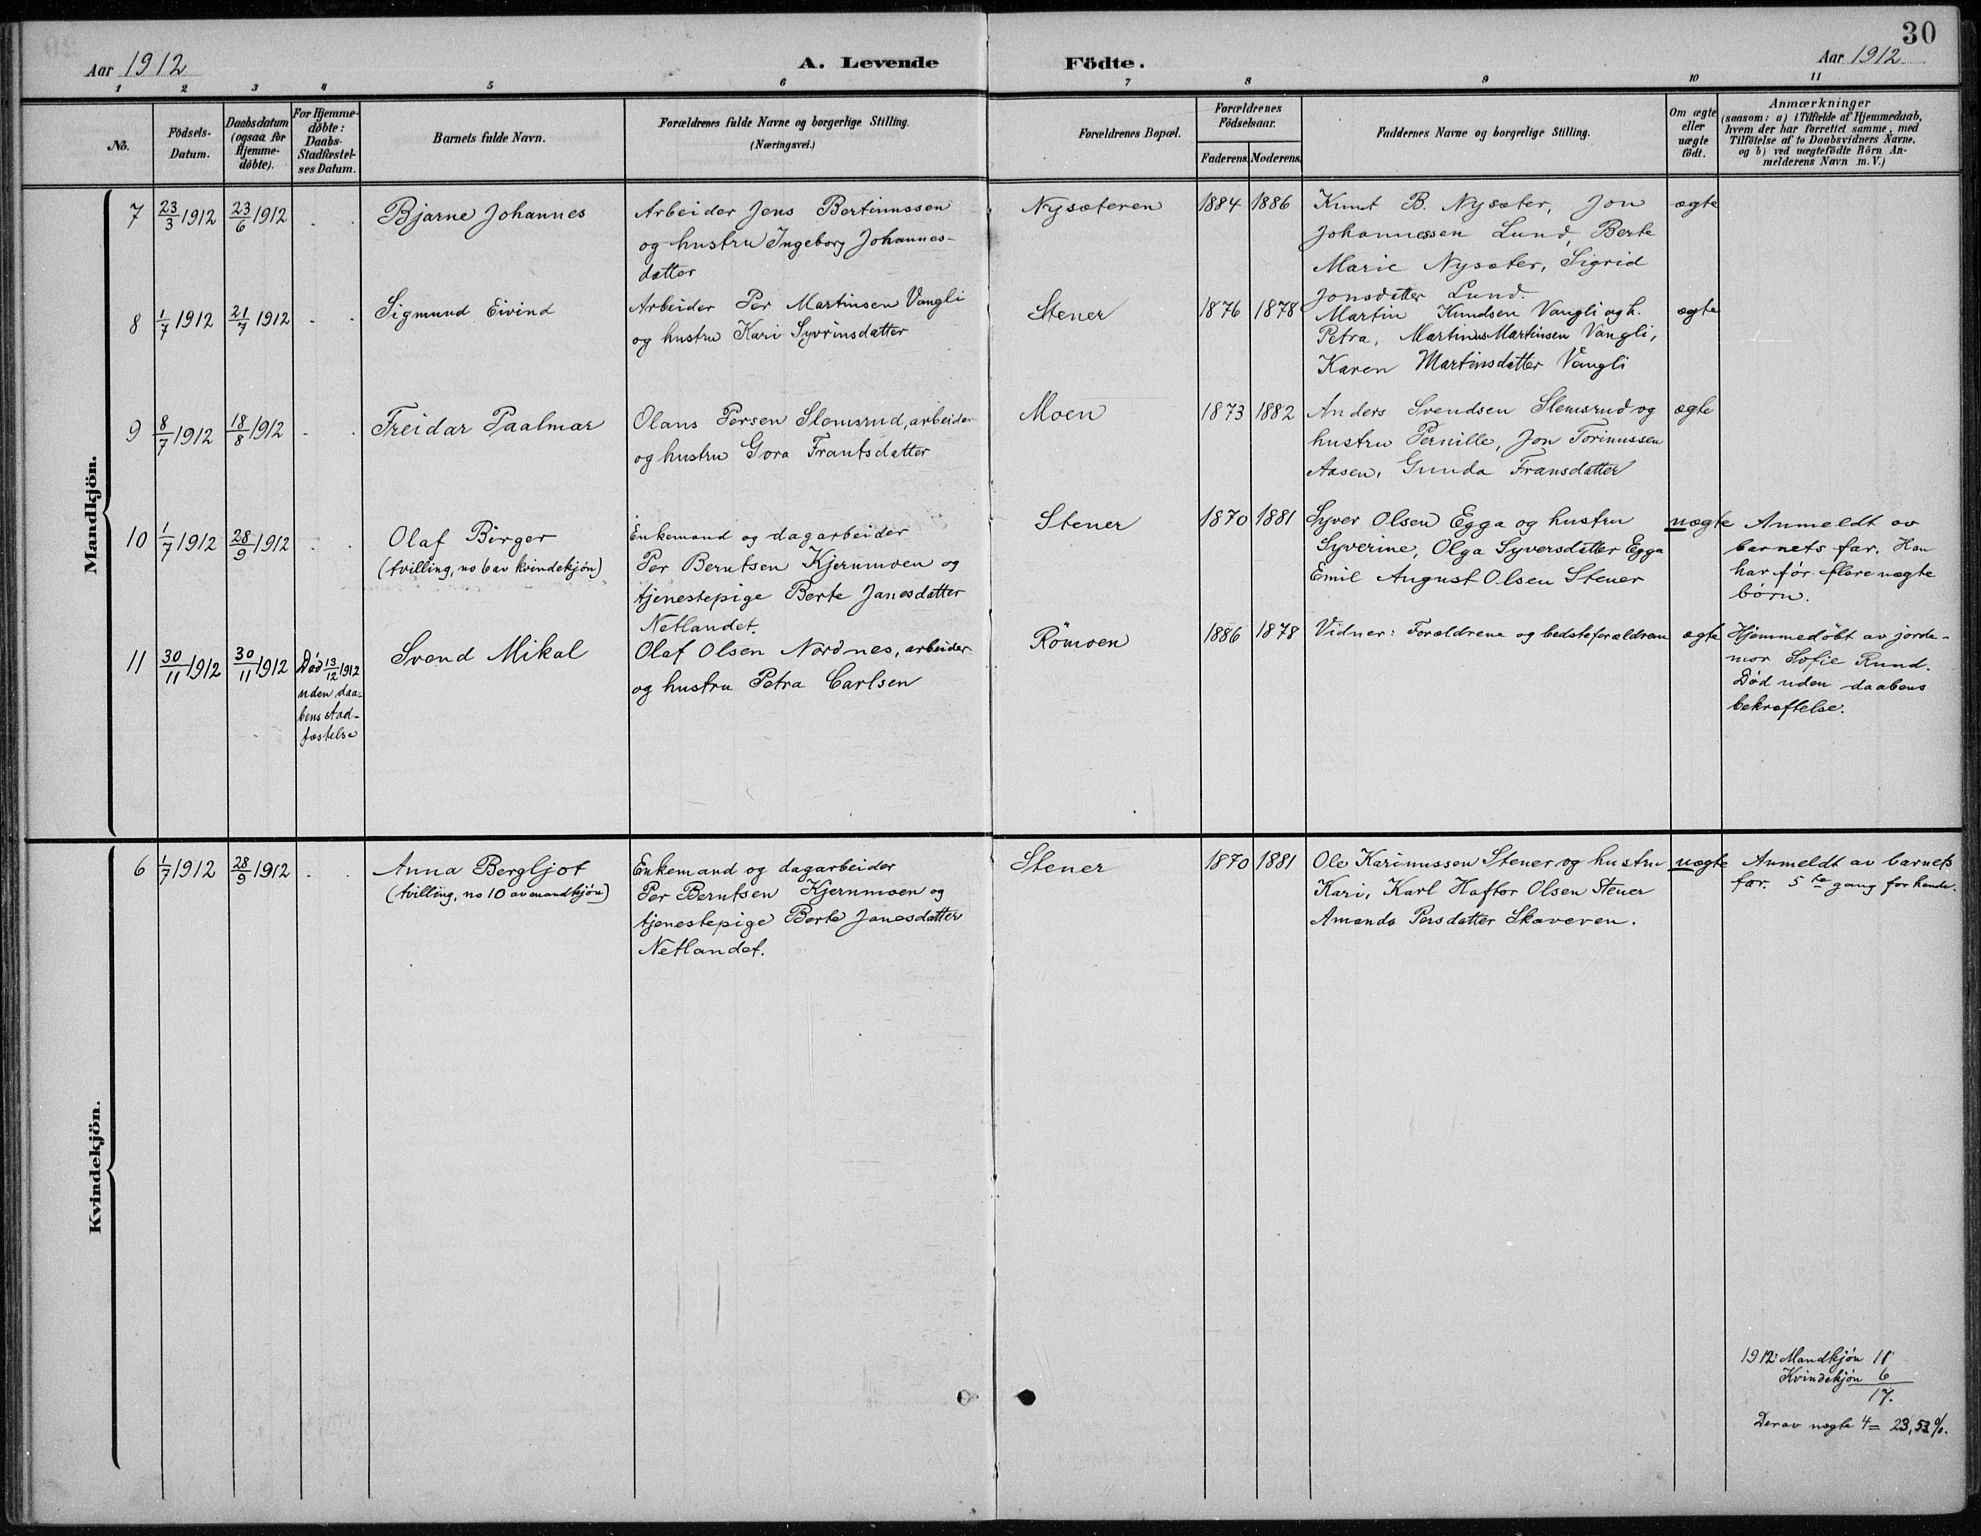 30
Aar 1912
A. Levende Födte.
Aar 1912
1 2 3 4 5 6 7 8 9 10 11
No.
Födsels-
Datum.
Daabsdatum
(ogsaa for
Hjemme-
döbte).
For Hjemme-
döbte:
Daabs-
Stadfæstel-
ses Datum.
Barnets fulde Navn.
Forældrenes fulde Navne og borgerlige Stilling.
(Næringsvei.)
Forældrenes Bopæl.
Forældrenes
Födselsaar.
Faderens. Moderens.
Faddernes Navne og borgerlige Stilling.
Om ægte
eller
uægte
födt.
Anmærkninger
(saasom: a) i Tilfælde af Hjemmedaab,
hvem der har forrettet samme, med
Tilföielse af to Daabsvidners Navne,
og b) ved uægtefödte Börn An-
melderens Navn m. V.)
Mandkjön.
7
23/3 1912
23/6 1912
Bjarne Johannes
Arbeider Jens Bertinussen
og hustru Ingeborg Johannes-
datter
Nysæteren
1884 1886
Knut B. Nysæter, Jon
Johannessen Lund, Berte
Marie Nysæter, Sigrid
Jonsdatter Lund.
ægte
8
1/7 1912
21/7 1912
Sigmund Eivind
Arbeider Per Martinsen Vangli
og hustru Kari Syvrinsdatter
Stener
1876 1878
Martin Knudsen Vangli og h.
Petra, Martinus Martinsen Vangli,
Karen Martinsdatter Vangli
ægte
9
8/7 1912
18/8 1912
Freidar Paalmar
Olaus Persen Slemsrud, arbeider
og hustru Gora Frantsdatter
Moen
1873 1882
Anders Svendsen Slemsrud og
hustru Pernille, Jon Torinussen
Aasen, Gunda Fransdatter
ægte
10
1/7 1912
28/9 1912
Olaf Birger
(tvilling, no 6 av kvindekjön)
Enkemand og dagarbeider
Per Berntsen Kjernmoen og
tjenestepige Berte Janesdatter
Netlandet.
Stener
1870 1881
Syver Olsen Egga og hustru
Syverine, Olga Syversdatter Egga
Emil August Olsen Stener
uægte
Anmeldt av
barnets far. Han
har før flere uægte
børn.
11
30/11 1912
30/11 1912
Død 13/12 1912
uden daa-
bens stad-
fæstelse
Svend Mikal
Olaf Olsen Nordnes, arbeider
og hustru Petra Carlsen
Römoen
1886 1878
Vidner: Forældrene og bedsteforældrene
ægte
Hjemmedøbt av jorde-
mor Sofie Rund.
Død uden daabens
bekræftelse.
Kvindekjön.
6
1/7 1912
28/9 1912
Anna Bergljot
(tvilling, no 10 av mandkjön)
Enkemand og dagarbeider
Per Berntsen Kjernmoen og
tjenestepige Berte Janesdatter
Netlandet.
Stener
1870 1881
Ole Karinussen Stener og hustru
Kari, Karl Haftor Olsen Stener
Amanda Persdatter Skaveren.
uægte
Anmeldt av barnets
far. 5te gang for hende.
1912: Mandkjøn 11
Kvindekjøn 6
17.
Derav uægte 4 = 23,53 %.